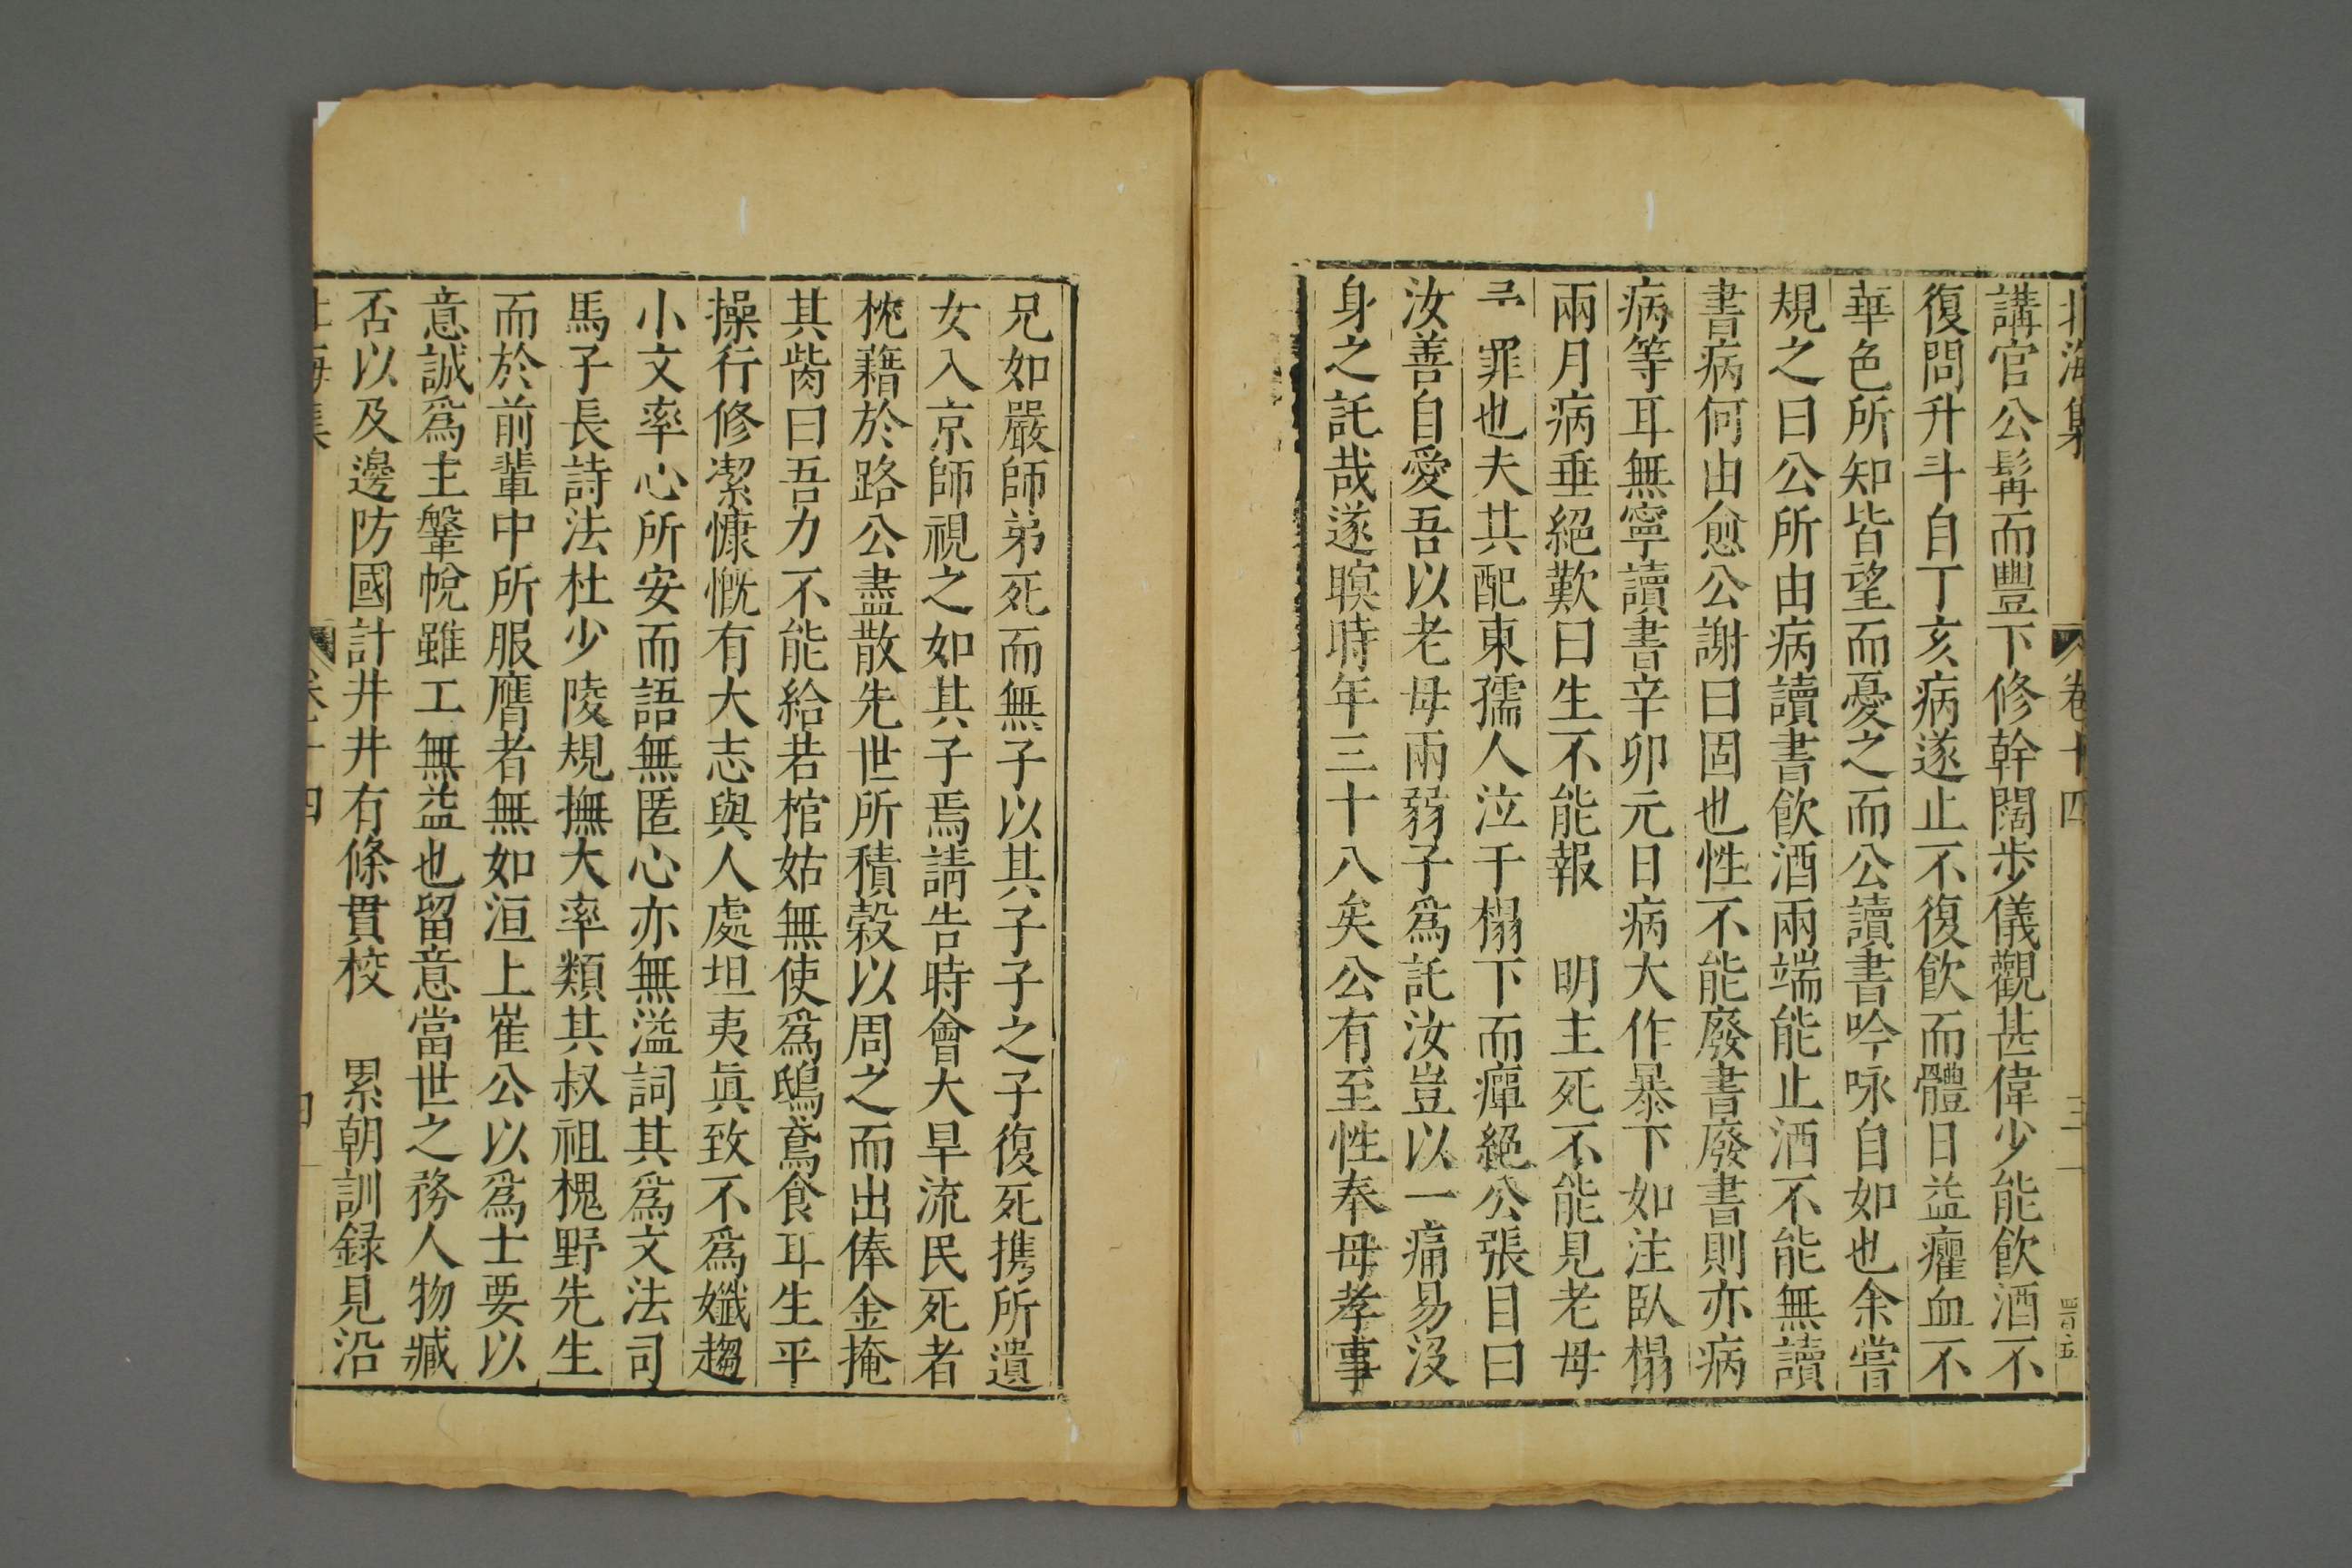 北海集 卷十四 三
講官公髯而豐下修幹闊步儀觀甚偉少能飲酒不
復問升斗自丁亥病遂止不復飲而體日益癯血不
華色所知皆望而憂之而公讀書吟咏自如也余嘗
規之曰公所由病讀書飲酒兩端能止酒不能無讀
書病何由愈公謝曰固也性不能廢書廢書則亦病
病等耳無寧讀書辛卯元日病大作暴下如注臥榻
兩月病垂絕歎曰生不能報 明主死不能見老母
罪也夫其配東孺人泣于榻下而癉絕公張目曰
汝善自愛吾以老母兩弱子爲託汝豈以一痛易沒
身之託哉遂瞑時年三十八矣公有至性奉母孝事
兄如嚴師弟死而無子以其子子之子復死攜所遺
女入京師視之如其子焉請告時會大旱流民死者
枕藉於路公盡散先世所積穀以周之而出俸金掩
其胔曰吾力不能給若棺姑無使爲鴟鳶食耳生平
操行修潔慷慨有大志與人處坦夷眞致不爲孅趨
小文率心所安而語無匿心亦無溢詞其爲文法司
馬子長詩法杜少陵規撫大率類其叔祖槐野先生
而於前輩中所服膺者無如洹上崔公以爲士要以
意誠爲主鞶帨雖工無益也留意當世之務人物臧
否以及邊防國計井井有條貫校 累朝訓録見沿
海集 卷十四 四